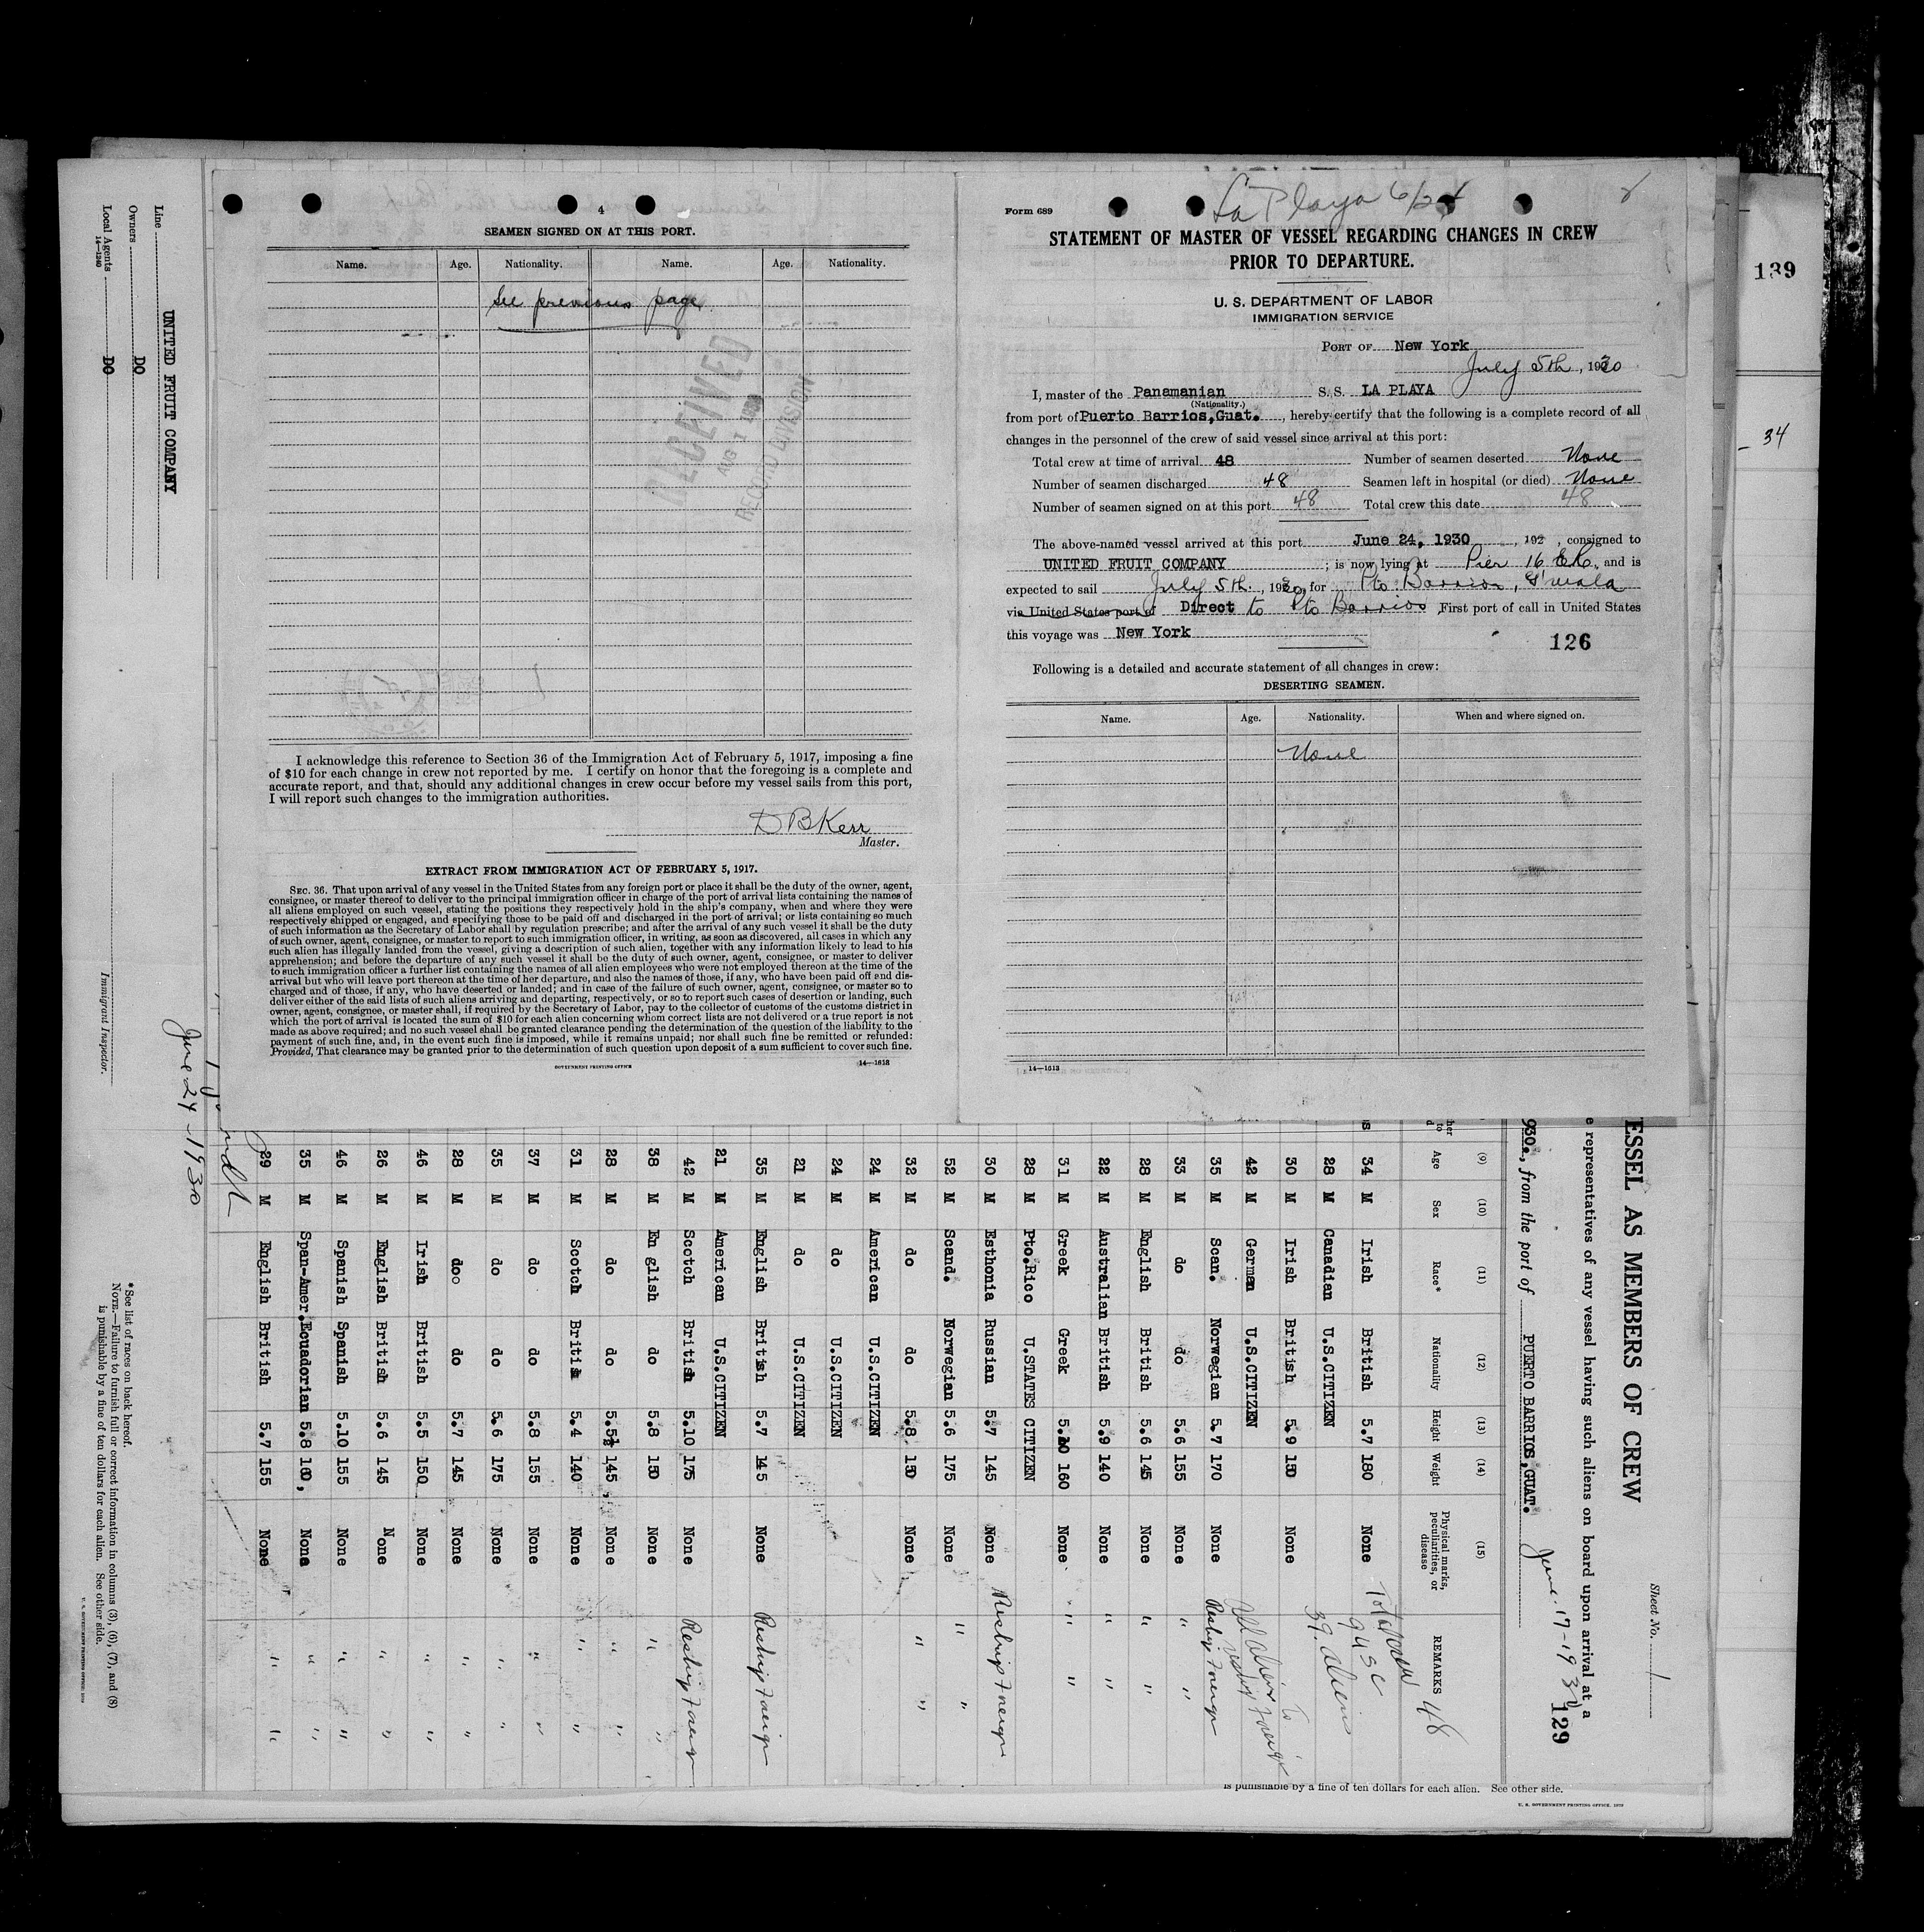 4
SEAMEN SIGNED ON AT THIS PORT.
Name. Age. Nationality. Name. Age. Nationality.
See previous page
RECEIVED
AUG 1 1930
RECORD DIVISION
I acknowledge this reference to Section 36 of the Immigration Act of February 5, 1917, imposing a fine
of $10 for each change in crew not reported by me. I certify on honor that the foregoing is a complete and
accurate report, and that, should any additional changes in crew occur before my vessel sails from this port,
I will report such changes to the immigration authorities.
D B Kerr
Master.
EXTRACT FROM IMMIGRATION ACT OF FEBRUARY 5, 1917.
SEC. 36. That upon arrival of any vessel in the United States from any foreign port or place it shall be the duty of the owner, agent,
consignee, or master thereof to deliver to the principal immigration officer in charge of the port of arrival lists containing the names of
all aliens employed on such vessel, stating the positions they respectively hold in the ship's company, when and where they were
respectively shipped or engaged, and specifying those to be paid off and discharged in the port of arrival; or lists containing so much
of such information as the Secretary of Labor shall by regulation prescribe; and after the arrival of any such vessel it shall be the duty
of such owner, agent, consignee, or master to report to such immigration officer, in writing, as soon as discovered, all cases in which any
such alien has illegally landed from the vessel, giving a description of such alien, together with any information likely to lead to his
apprehension; and before the departure of any such vessel it shall be the duty of such owner, agent, consignee, or master to deliver
to such immigration officer a further list containing the names of all alien employees who were not employed thereon at the time of the
arrival but who will leave port thereon at the time of her departure, and also the names of those, if any, who have been paid off and dis-
charged and of those, if any, who have deserted or landed; and in case of the failure of such owner, agent, consignee, or master so to
deliver either of the said lists of such aliens arriving and departing, respectively, or so to report such cases of desertion or landing, such
owner, agent, consignee, or master shall, if required by the Secretary of Labor, pay to the collector of customs of the customs district in
which the port of arrival is located the sum of $10 for each alien concerning whom correct lists are not delivered or a true report is not
made as above required; and no such vessel shall be granted clearance pending the determination of the question of the liability to the
payment of such fine, and, in the event such fine is imposed, while it remains unpaid; nor shall such fine be remitted or refunded:
Provided, That clearance may be granted prior to the determination of such question upon deposit of a sum sufficient to cover such fine.
GOVERNMENT PRINTING OFFICE 14—1613
La Playa 6/24
Form 689
STATEMENT OF MASTER OF VESSEL REGARDING CHANGES IN CREW
PRIOR TO DEPARTURE.
U. S. DEPARTMENT OF LABOR
IMMIGRATION SERVICE
PORT OF New York
July 5th, 1930
I, master of the Panamanian S. S. LA PLAYA
(Nationality.)
from port of Puerto Barrios, Guat., hereby certify that the following is a complete record of all
changes in the personnel of the crew of said vessel since arrival at this port:
Total crew at time of arrival 48 Number of seamen deserted None
Number of seamen discharged 48 Seamen left in hospital (or died) None
Number of seamen signed on at this port 48 Total crew this date 48
The above-named vessel arrived at this port June 24, 1930, 192 , consigned to
UNITED FRUIT COMPANY ; is now lying at Pier 16 E.R., and is
expected to sail July 5th, 1930, for Pto Barrios, G'mala
via United States port of Direct to Pto Barrios. First port of call in United States
this voyage was New York
126
Following is a detailed and accurate statement of all changes in crew:
DESERTING SEAMEN.
Name. Age. Nationality. When and where signed on.
None
14—1613
139
34
Line UNITED FRUIT COMPANY
Owners DO
Local Agents DO
14—1240
Immigrant Inspector.
June 24-1930
*See list of races on back hereof.
NOTE.—Failure to furnish full or correct information in columns (3), (6), (7), and (8)
is punishable by a fine of ten dollars for each alien. See other side.
Sheet No. 1
ESSEL AS MEMBERS OF CREW
e representatives of any vessel having such aliens on board upon arrival at a
930., from the port of PUERTO BARRIOS, GUAT. June 17-1930
129
(9) (10) (11) (12) (13) (14) (15)
Age Sex Race* Nationality Height Weight Physical marks, peculiarities, or disease REMARKS 48
34 M Irish British 5.7 180 None Total crew
9 USC
28 M Canadian U.S.CITIZEN 39 Aliens
30 M Irish British 5.9 150 None
42 M German U.S.CITIZEN All Aliens to reship foreign
35 M Scan. Norwegian 5.7 170 None Reship Foreign
33 M do do 5.6 155 None " "
28 M English British 5.6 145 None " "
22 M Australian British 5.9 140 None " "
31 M Greek Greek 5.10 160 None " "
28 M Pto.Rico U.STATES CITIZEN
30 M Esthonia Russian 5.7 145 None Reship Foreign
52 M Scand. Norwegian 5.6 175 None " "
32 M do do 5.8 150 None " "
24 M American U.S.CITIZEN
24 M do U.S.CITIZEN
21 M do U.S.CITIZEN
35 M English British 5.7 145 None Reship Foreign
21 M American U.S.CITIZEN
42 M Scotch British 5.10 175 None Reship Foreign
38 M En glish do 5.8 150 None " "
28 M do do 5.5½ 145, None " "
31 M Scotch British 5.4 140 None " "
37 M do do 5.8 155 None " "
35 M do do 5.6 175 None " "
28 M doo do 5.7 145 None " "
46 M Irish British 5.5 150 None " "
26 M English British 5.6 145 None " "
46 M Spanish Spanish 5.10 155 None " "
35 M Span-Amer. Ecuadorian 5.8 160, None " "
39 M English British 5.7 155 None " "
is punishable by a fine of ten dollars for each alien. See other side.
U. S. GOVERNMENT PRINTING OFFICE